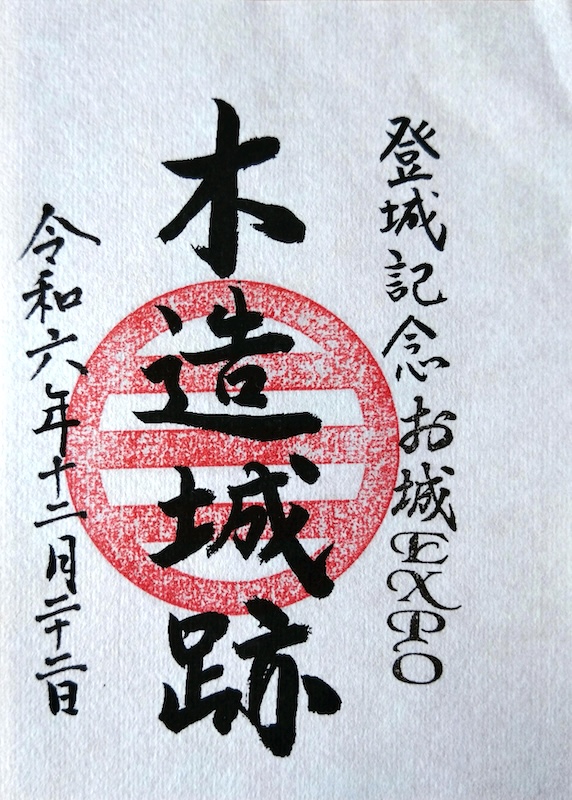 登城記念お城EXPO
木造城跡
令和六年十二月二十二日